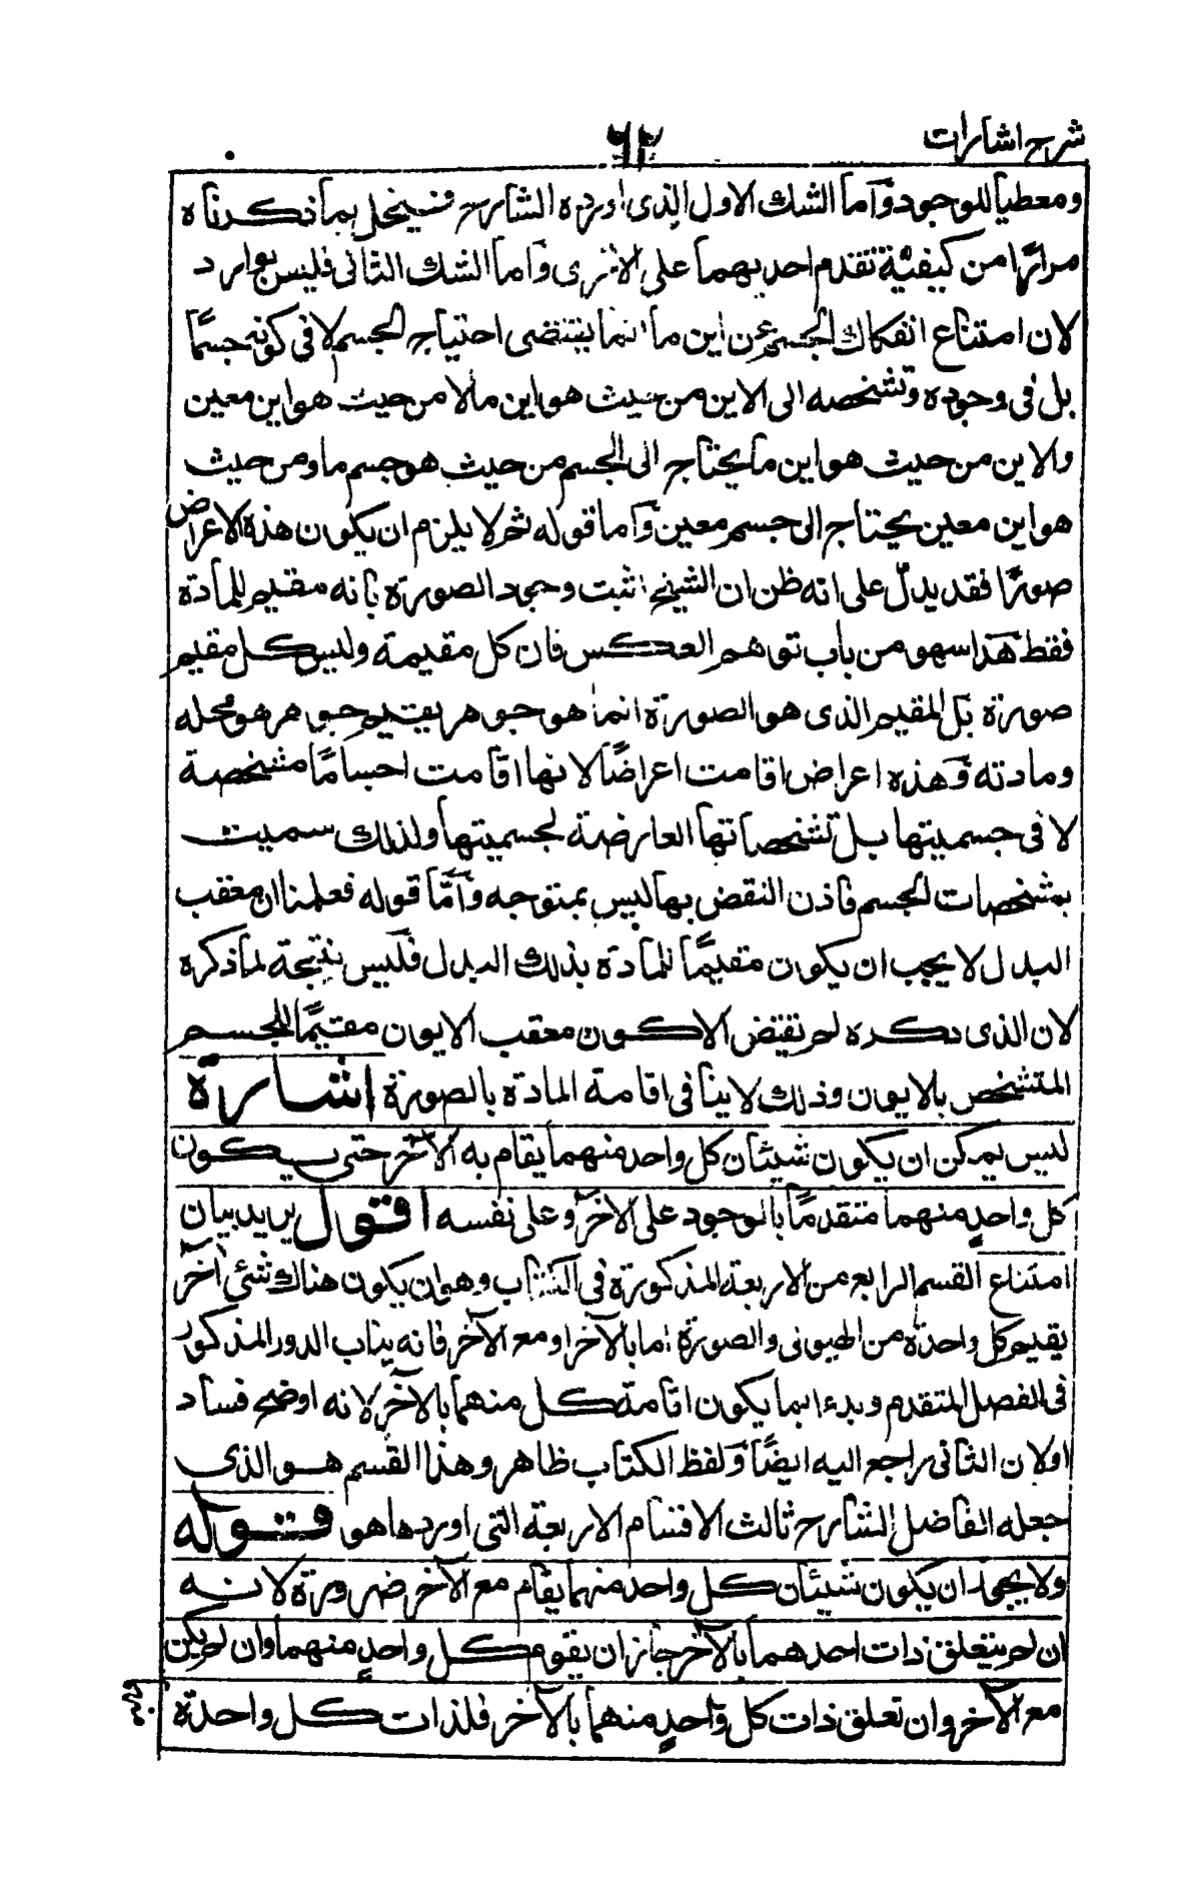 شرح اشارات
٦٢
ومعطيا للوجود وأما الشك الاول الذى اورده الشارح فينحل بما ذكرناه
مرارًا من كيفية تقدم احديهما على الاخرى وأما الشك الثانى فليس بوارد
لان امتناع انفكاك الجسم عن اين ما انما يقتضى احتياج الجسم لا فى كونه جسمًا
بل فى وجوده وتشخصه الى الاين من حيث هو اين ما لا من حيث هو اين معين
والاين من حيث هو اين ما يحتاج الى الجسم من حيث هو جسم ما ومن حيث
هو اين معين يحتاج الى جسم معين وأما قوله ثم لا يلزم ان يكون هذه الاعراض
صورًا فقد يدلّ على انه ظن ان الشيخ اثبت وجود الصورة بانه مقيم للمادة
فقط هذا سهو من باب توهم العكس فان كل مقيمة وليس كل مقيم
صورة بل المقيم الذى هو الصورة انما هو جوهر يقيم جوهر هو محله
ومادته وهذه اعراض اقامت اعراضًا لانها اقامت اجسامًا مشخصة
لا فى جسميتها بل تشخصاتها العارضة لجسميتها ولذلك سميت
بمشخصات الجسم فاذن النقض بها ليس بمتوجه وأمّا قوله فعلمنا ان معقب
البدل لا يجب ان يكون مقيمًا للمادة بذلك البدل فليس نتيجة لما ذكره
لان الذى ذكره لم يقتض الا كون معقب الايون مقيمًا للجسم
المتشخص بالايون وذلك لا ينافى اقامة المادة بالصورة اشارة
ليس يمكن ان يكون شيئان كل واحد منهما يقام به الآخر حتى يكون
كل واحدٍ منهما متقدمًا بالوجود على الآخر وعلى نفسه اقول يريد بيان
امتناع القسم الرابع من الاربعة المذكورة فى الكتاب وهو ان يكون هناك شئ آخر
يقيم كل واحدة من الهيولى والصورة اما بالآخر او مع الآخر فانه يناب الدور المذكور
فى الفصل المتقدم وبدء بما يكون اقامة كل منهما بالآخر لانه اوضح فساد
اولان الثانى راجع اليه ايضًا ولفظ الكتاب ظاهر وهذا القسم هو الذى
جعله الفاضل الشارح ثالث الاقسام الاربعة التى اوردها هو قوله
ولا يجوز ان يكون شيئان كل واحد منهما يقام مع الآخر ضرورة لانه
ان لم يتعلق ذات احدهما بالآخر جاز ان يقوم كل واحدٍ منهما وان لم يكن
مع الآخر وان تعلق ذات كل واحدٍ منهما بالآخر فلذات كل واحدة